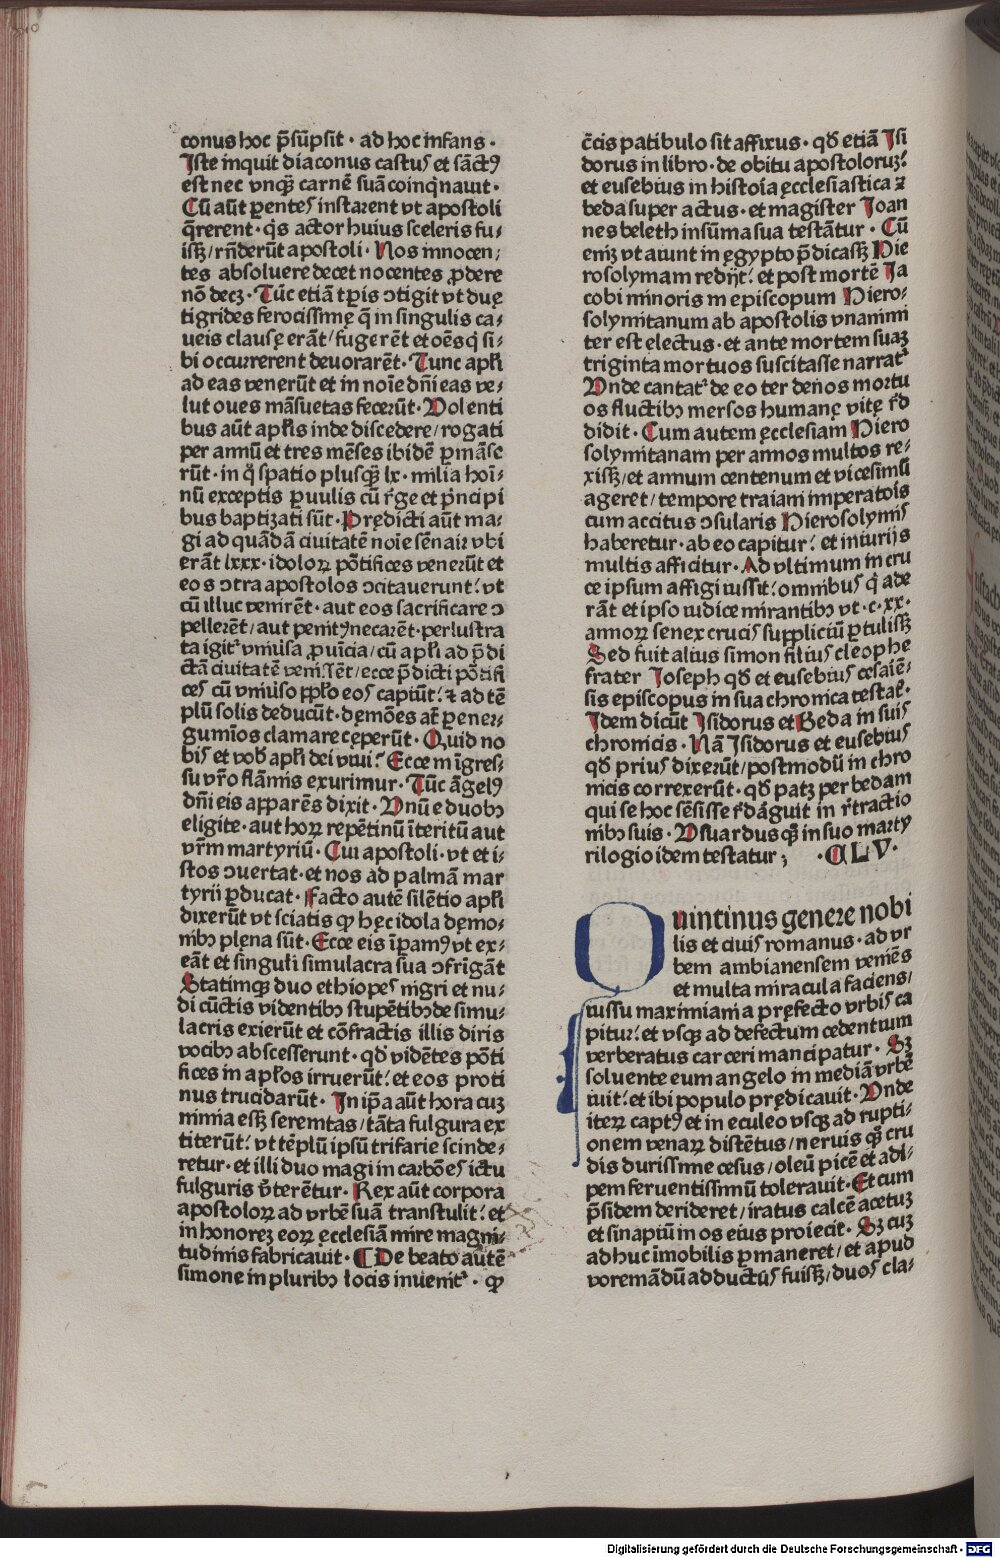 conus hoc p̄sūpsit · ad hoc infans ·
Iste inquit diaconus castus et sāctꝰ
est nec vnqꝫ carnē suā coinq̇nauit ·
Cū aūt pentes instarent vt apostoli
q̄rerent · qs actor huius sceleris fu⸗
isꝫ / rn̄derūt apostoli · Nos innocen⸗
tes absoluere decet nocentes ꝓdere
nō decꝫ · Tūc etiā tꝑis ↄtigit vt duę
tigrides ferocissimę q̄ in singulis ca⸗
ueis clausę erāt / fugerēt et oēsqꝫ si⸗
bi occurrerent deuorarēt · Tunc apłi
ad eas venerūt et in noīe dn̄i eas ve⸗
lut oues māsuetas fecerūt · Volenti
bus aūt apłis inde discedere / rogati
per annū et tres mēses ibidē ꝑmāse
rūt · in q̇ spatio plusqꝫ lx · milia hoī⸗
nū exceptis ꝑuulis cū rēge et pͥncipi
bus baptizati sūt · Prędicti aūt ma⸗
gi ad quādā ciuitatē noīe sēnair vbi
erāt lxxx · idoloꝝ pōtifices venerūt et
eos ↄtra apostolos ↄcitauerunt : vt
cū illuc venirēt · aut eos sacrificare ↄ
pellerēt / aut penitꝰ necarēt · perlustra
ta igit᷒ vniūsa ꝓuīcia / cū apłi ad p̄di
ctā ciuitatē venissēt / ecce p̄dicti pōtifi
ces cū vniūso ppło eos capiūt : ⁊ ad tē
plū solis deducūt · dęmōes at̄ ꝑ ener⸗
gumīos clamare cęperūt · Quid no
bis et vob̄ apłi dei viui : Ecce in īgres⸗
su vr̄o flāmis exurimur · Tūc āgelꝰ
dn̄i eis apparēs dixit · Vnū e duobꝫ
eligite · aut hoꝝ repētinū īteritū aut
vr̄m martyriū · Cui apostoli · vt et i⸗
stos ↄuertat · et nos ad palmā mar
tyrii ꝑducat · Facto autē silētio apłi
dixerūt vt sciatis qꝫ hęc idola dęmo⸗
nibꝫ plęna sūt · Ecce eis īꝑamꝰ vt ex⸗
eāt et singuli simulacra sua ↄfrīgāt
Statimqꝫ duo ethiopes nigri et nu⸗
di cūctis videntibꝫ stupētibꝫ de simu⸗
lacris exierūt et cōfractis illis diris
vocibꝫ abscesserunt · qd̄ vidētes pōti
fices in apłos irruerūt : et eos proti
nus trucidarūt · In ip̄a aūt hora cuꝫ
nimia esꝫ serenitas / tāta fulgura ex
titerūt : vt tēplū ipsū trifarie scinde⸗
retur · et illi duo magi in carbōes ictu
fulguris v̄terētur · Rex aūt corpora
apostoloꝝ ad vrbē suā transtulit : et
in honoreꝫ eoꝝ ęcclesiā mire magni⸗
tudinis fabricauit · De beato autē
simone in pluribꝫ locis inuenit᷒ · qꝫ
c̄cis patibulo sit affixus · qd̄ etiā Isi
dorus in libro · de obitu apostoloruꝫ :
et eusebius in historia ęcclesiastica ⁊
beda super actus · et magister Joan
nes beleth in sūma sua testātur · Cū
enī vt aiunt in ęgypto p̄dicasꝫ Hie
rosolymam redijt : et post mortē Ja
cobi minoris in episcopum Hiero⸗
solymitanum ab apostolis vnanimi
ter est electus · et ante mortem suaꝫ
triginta mortuos suscitasse narrat᷒
Vnde cantat᷒ de eo ter denos mortu
os fluctibꝫ mersos humanę vitę rēd
didit · Cum autem ęcclesiam Hiero
solymitanam per annos multos re⸗
xisꝫ / et annum centenum et vicesimū
ageret / tempore traiani imperatoris
cum accitus ↄsularis Hierosolymis
haberetur · ab eo capitur : et iniurijs
multis afficitur · Ad vltimum in cru
ce ipsum affigi iussit : omnibus q̇ ade
rāt et ipso iudice mirantibꝫ vt · c · xx ·
annoꝝ senex crucis suppliciū ꝑtulisꝫ
Sed fuit alius simon filius cleophe
frater Joseph qd̄ et eusebius cesariē⸗
sis episcopus in sua chronica testat᷒ ·
Idem dicūt Isidorus et Beda in suis
chronicis · Nā Isidorus et eusebius
qd̄ prius dixerūt / postmodū in chro
nicis correxerūt · qd̄ patꝫ per bedam
qui se hoc sēsisse rēdarguit in rētractio
nibꝫ suis · Vsuardus qꝫ in suo marty
rilogio idem testatur ; · CLV ·
Quintinus genere nobi
lis et ciuis romanus · ad vr
bem ambianensem veniēs
et multa miracula faciens /
iussu maximiani a pręfecto vrbis ca
pitur : et vsqꝫ ad defectum cedentium
verberatus carceri mancipatur · Sꝫ
soluente eum angelo in mediā vrbē
iuit : et ibi populo prędicauit · Vnde
iteꝝ captꝰ et in eculeo vsqꝫ ad rupti⸗
onem venaꝝ distētus / neruis qꝫ cru
dis durissime cęsus / oleū picē et adi⸗
pem feruentissimū tolerauit · Et cum
p̄sidem derideret / iratus calcē acetuꝫ
et sinapiū in os eius proiecit · Sꝫ cuꝫ
adhuc īmobilis ꝑmaneret / et apud
voremādū adductus fuisꝫ / duos cla⸗
Digitalisierung gefördert durch die Deutsche Forschungsgemeinschaft · DFG